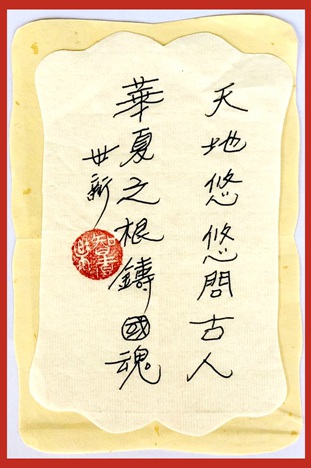 天地悠悠問古人
華夏之根鑄國魂
世新